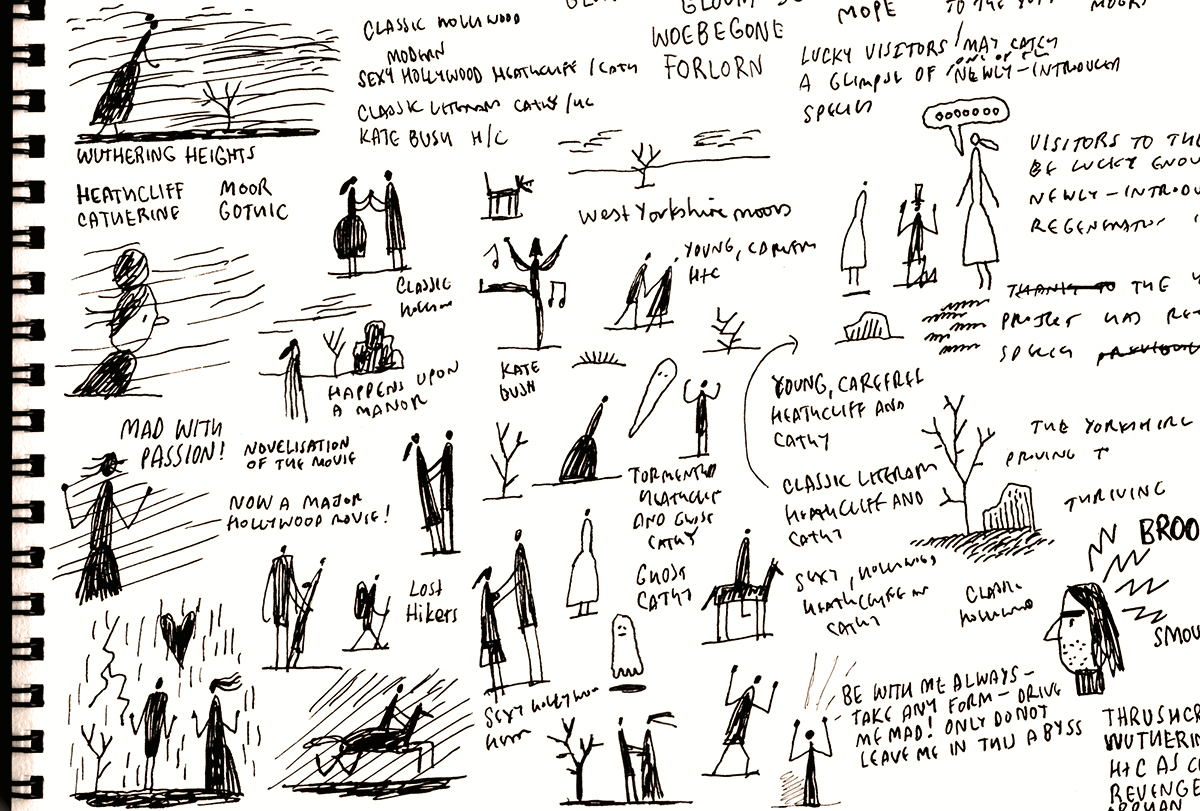 CLASSIC HOLLYWOOD
MODERN
SEXY HOLLYWOOD HEATHCLIFF / CATH
CLASSIC LITERARY CATHY / HC
KATE BUSH H/C
WOEBEGONE
FORLORN
MOPE TO THE
LUCKY VISITORS MAY CATCH
ONE OF
A GLIMPSE OF NEWLY-INTRODUCED
SPECIES
WUTHERING HEIGHTS
HEATHCLIFF MOOR
CATHERINE GOTHIC
West Yorkshire moors
VISITORS TO TH
BE LUCKY ENOU
NEWLY-INTRODU
CLASSIC
YOUNG, CAREFREE
H+C
KATE
BUSH
HAPPENS UPON
A MANOR
THANKS TO THE Y
PROJECT HAS RE
SPECIES
MAD WITH
PASSION!
NOVELISATION
OF THE MOVIE
NOW A MAJOR
HOLLYWOOD MOVIE!
YOUNG, CAREFREE
HEATHCLIFF AND
CATHY
TORMENTED
HEATHCLIFF
AND GHOST
CATHY
CLASSIC LITERARY
HEATHCLIFF AND
CATHY
THE YORKSHIRE
PROVING T
THRIVING
GHOST
CATHY
SEXY, HOLLYWOOD
HEATHCLIFF AND
CATHY
CLASSIC
HOLLYWOOD
BROO
SMOU
LOST
Hikers
SEXY HOLLYWOO
BE WITH ME ALWAYS -
TAKE ANY FORM - DRIVE
ME MAD! ONLY DO NOT
LEAVE ME IN THIS ABYSS
THRUSHCR
WUTHERIN
H+C AS C
REVENGE